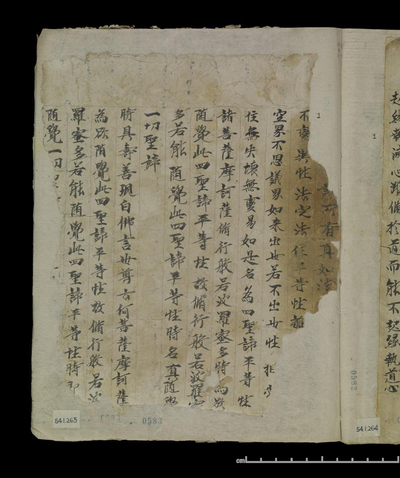 不虛妄性法定法住平等性離
空界不思議界如來出世若不出世性相常
住無失壞無變易如是名為四聖諦平等性
諸菩薩摩訶薩修行般若波羅蜜多時為欲
隨覺此四聖諦平等性故修行般若波羅蜜
多若能隨覺此四聖諦平等性時名真隨覺
一切聖諦
時具壽善現白佛言世尊云何菩薩摩訶薩
為欲隨覺此四聖諦平等性故修行般若波
羅蜜多若能隨覺此四聖諦平等性時
隨覺一切
起
心
於道而能不起
執道心
541265
0583
541264
0582
cm